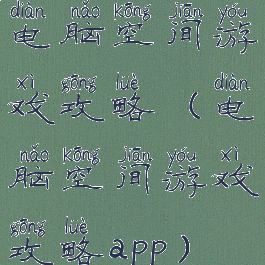 diàn nǎo kōng jiān yóu
电脑空间游
xì gōng lüè diàn
戏攻略(电
nǎo kōng jiān yóu xì
脑空间游戏
gōng lüè
攻略app)